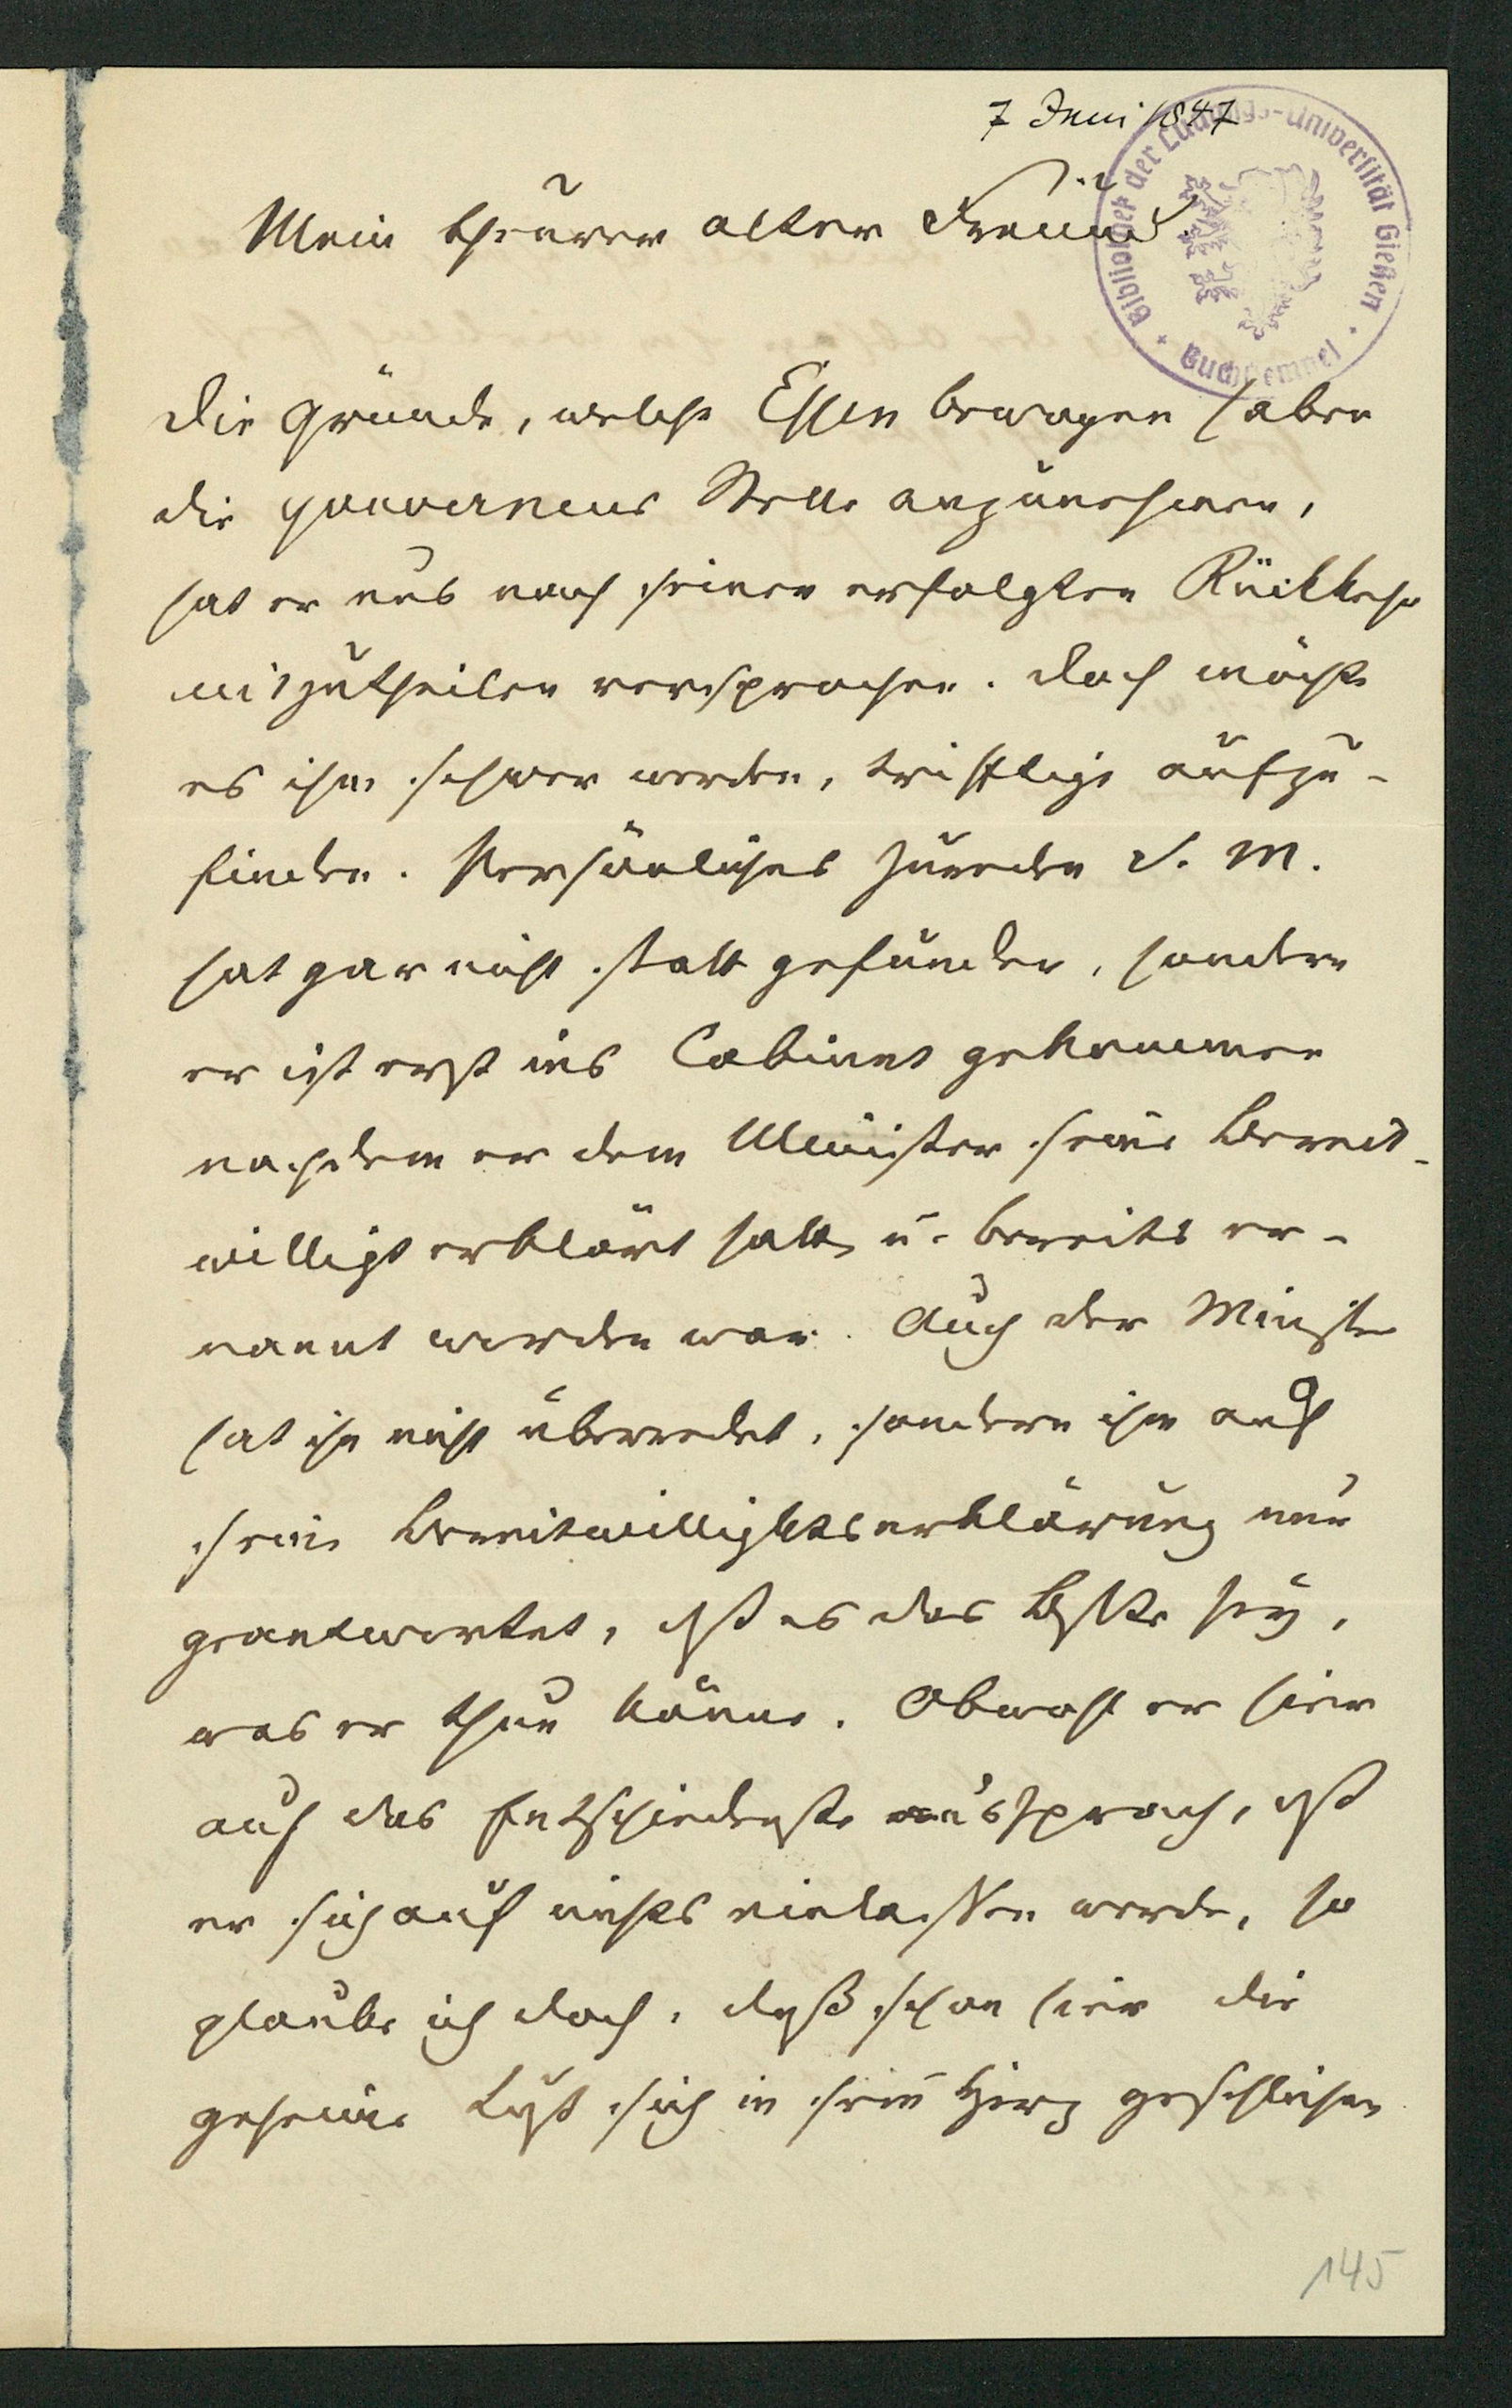 7 Juni 1847
Bibliothek der Ludwigs-Universität Gießen
Buchstempel
Mein theurer alter Freund.
Die Gründe, welche Essen bewogen haben
die gouverneur Stelle anzunehmen,
hat er uns nach seiner erfolgten Rückkehr
mitzutheilen versprochen. Doch möchte
es ihm schwer werden, trifftige aufzu-
finden. Persönliches Zureden S. M.
hat gar nicht statt gefunden, sondern
er ist erst ins Cabinet gekommen
nachdem er dem Minister seine Bereit-
willigkt erklärt hatte u. bereits er-
nannt worden war. Auch der Minister
hat ihn nicht überredet, sondern ihm auf
seine Bereitwilligktserklärung nur
geantwortet, dß es das Beste sey,
was er thun könne. Obwohl er hier
auf das Entschiedenste aussprach, dß
er sich auf nichts einlassen werde, so
glaube ich doch, daß schon hier die
geheime Lust sich in sein Herz geschlichen
145